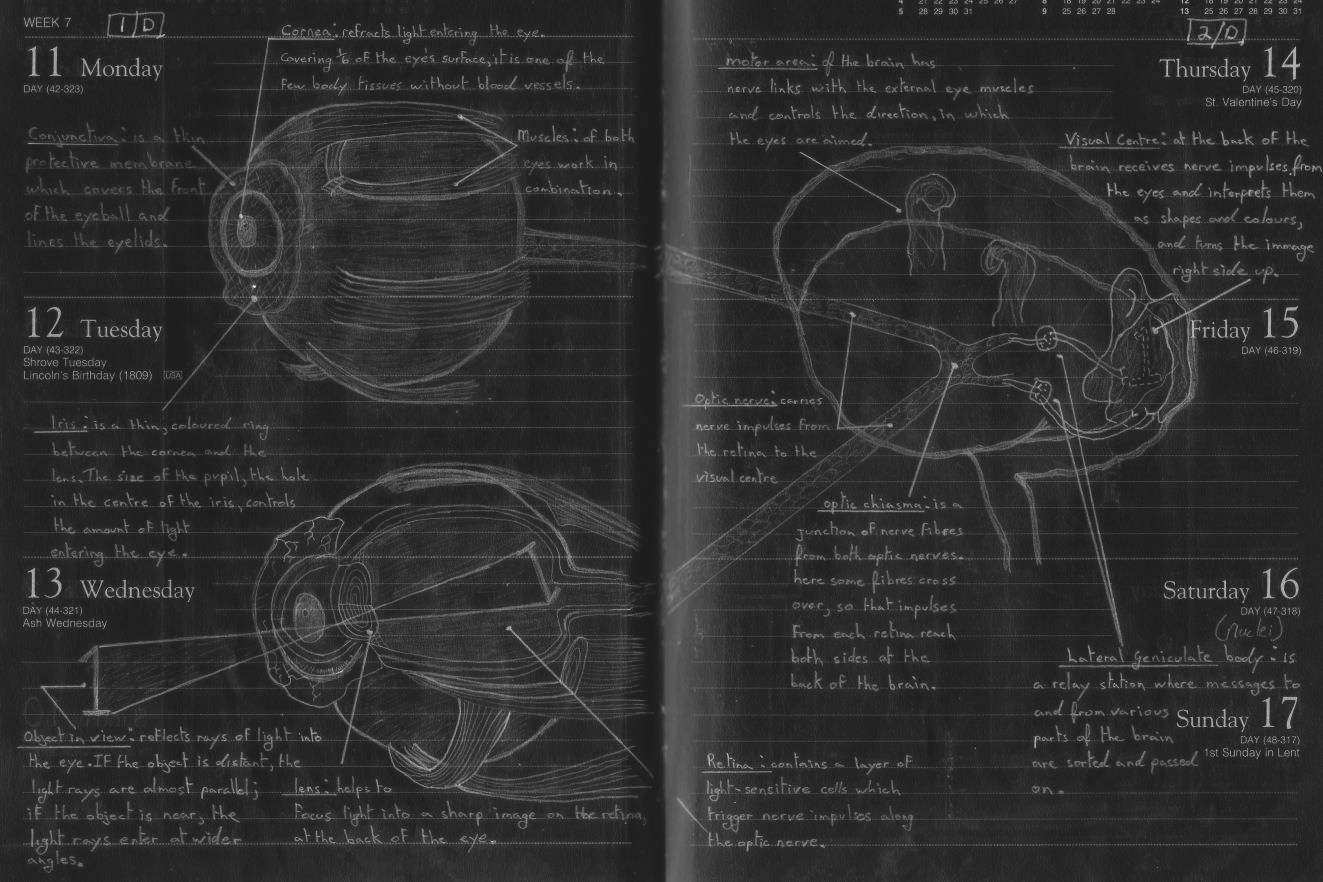 WEEK 7
1/D
11 Monday
DAY (42-323)
Cornea: refracts light entering the eye.
Covering 1/6 of the eye's surface, it is one of the
few body tissues without blood vessels.
Conjunctiva: is a thin
protective membrane
which covers the front
of the eyeball and
lines the eyelids.
Muscles: of both
eyes work in
combination.
12 Tuesday
DAY (43-322)
Shrove Tuesday
Lincoln's Birthday (1809) USA
Iris: is a thin, coloured ring
between the cornea and the
lens. The size of the pupil, the hole
in the centre of the iris, controls
the amount of light
entering the eye.
13 Wednesday
DAY (44-321)
Ash Wednesday
Object in view: reflects rays of light into
the eye. IF the object is distant, the
light rays are almost parallel;
if the object is near, the
light rays enter at wider
angles.
lens: helps to
focus light into a sharp image on the retina,
at the back of the eye.
4 21 22 23 24 25 26 27
5 28 29 30 31
8 18 19 20 21 22 23 24
9 25 26 27 28
12 18 19 20 21 22 23 24
13 25 26 27 28 29 30 31
2/D
Thursday 14
DAY (45-320)
St. Valentine's Day
motor area: of the brain has
nerve links with the external eye muscles
and controls the direction, in which
the eyes are aimed.
Visual Centre: at the back of the
brain receives nerve impulses from
the eyes and interprets them
as shapes and colours,
and turns the immage
right side up.
Friday 15
DAY (46-319)
Optic nerve: carries
nerve impulses from
the retina to the
visual centre
optic chiasma: is a
junction of nerve fibres
from both optic nerves.
here some fibres cross
over, so that impulses
from each retina reach
both sides at the
back of the brain.
Saturday 16
DAY (47-318)
(nuclei)
Lateral Geniculate body: is
a relay station where messages to
and from various
parts of the brain
are sorted and passed
on.
Sunday 17
DAY (48-317)
1st Sunday in Lent
Retina: contains a layer of
light-sensitive cells which
trigger nerve impulses along
the optic nerve.